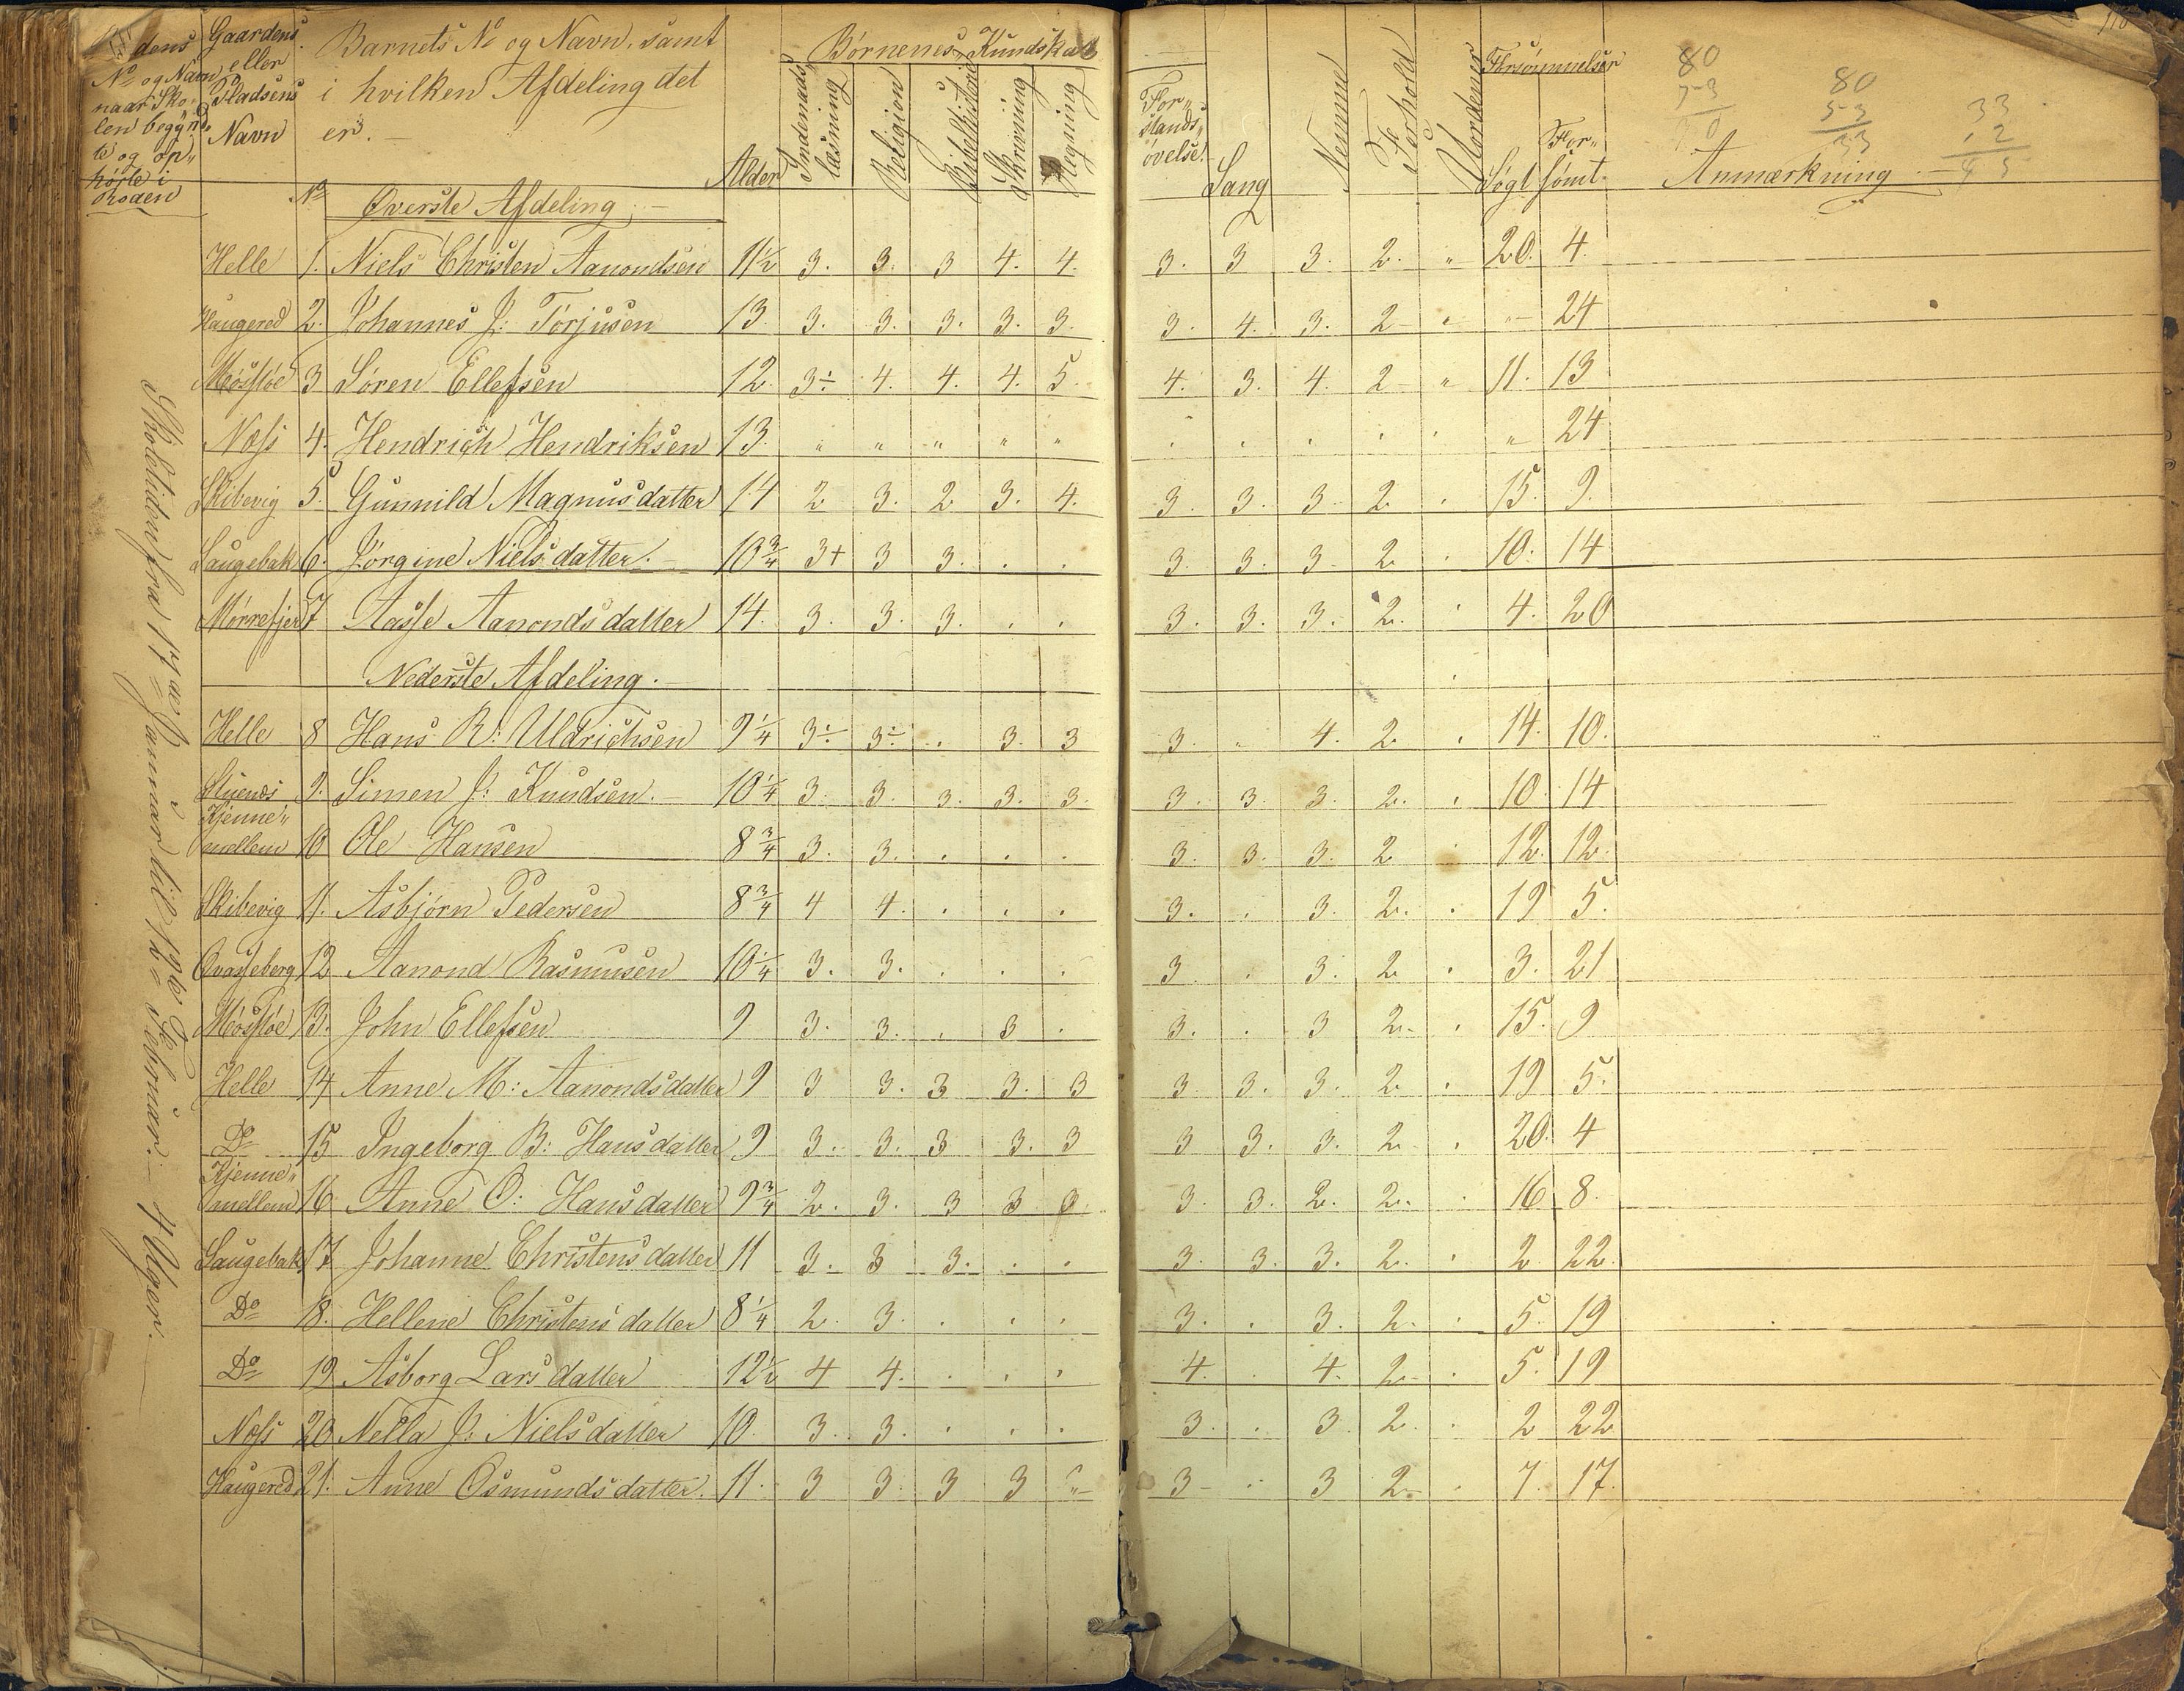 dens
No og Navn
naar Sko-
len begynd-
te og op-
hørte i
Roden
Gaardens
eller
Pladsens
Navn
Barnets No og Navn, samt
i hvilken Afdeling det
er. —
Alder
Børnenes Kundskab
Indenads-
læsning
Religion
Bibelhistorie
Skrivning
Regning
For-
stands-
øvelse.
Sang
Nemme
Forhold
Uordener
Forsømmelser
Søgt
For-
sømt.
Anmærkning. —
80
80
53
33
33
12
45
Skoletiden fra 17de Januar til 12te Februar. — 4 Uger. —
No Øverste Afdeling. —
Helle 1. Niels Christen Aanondsen 11½ 3. 3. 3 4. 4. 3. 3 3. 2. " 20. 4.
Haugered 2. Johannes J: Torjusen 13. 3. 3. 3. 3. 3. 3. 4. 3. 2 " " 24
Møsfløe 3 Søren Ellefsen 12. 3÷ 4. 4. 4. 5. 4. 3. 4. 2 " 11. 13
Næss 4. Hendrich Hendriksen 13. " " " " " " " " " " " 24
Skibevig 5. Gunnild Magnusdatter 14 2 3. 2 3. 4. 3. 3. 3 2 . 15. 9.
Saugebak 6. Jørgine Nielsdatter. 10¾ 3+ 3 3. . . 3. 3. 3 2 . 10. 14
Mørrefjer 7 Aasse Aanondsdatter 14. 3. 3. 3. . . 3. 3. 3. 2. . 4. 20
Nederste Afdeling. —
Helle 8 Hans R: Uldrichsen 9¼ 3÷ 3÷ . 3. 3 3. " 4. 2 . 14. 10.
Stuenes 9. Simen J: Knudsen. 10¼ 3. 3. 3. 3. 3. 3. 3. 3. 2. . 10. 14
Kjenne-
mellem 10 Ole Hansen 8¾ 3. 3. . . . 3. 3. 3. 2 . 12. 12.
Skibevig 11. Asbjørn Pedersen 8¾ 4 4. . . . 3. . 3. 2. . 19 5.
Qvasseberg 12 Aanond Rasmusen 10¼ 3. 3. . . . 3 . 3. 2. . 3. 21
Møsfløe 13. John Ellefsen 9 3. 3. . 3 . 3. . 3 2. . 15. 9
Helle 14 Anne M: Aanondsdatter 9 3 3. 3 3. 3 3. 3. 3. 2. . 19 5.
Do 15 Ingeborg B: Hansdatter 9 3. 3. 3 3. 3 3 3. 3. 2. . 20. 4
Kjenne-
mellem 16 Anne O: Hansdatter 9¾ 2. 3. 3 3 3. 3. 3. 2. 2. . 16 8.
Saugebak 17 Johanne Christensdatter 11 3. 3 3. . . 3. 3. 3. 2. . 2. 22.
Do 18. Hellene Christensdatter 8¼ 2. 3. . . . 3. . 3. 2. . 5. 19
Do 19 Asborg Larsdatter 12½ 4 4. . . . 4. . 4. 2. . 5. 19
Næss 20 Nella J: Nielsdatter 10. 3. 3. . . . 3. . 3. 2. . 2 22
Haugered 21. Anne Osmundsdatter. 11. 3 3. 3 3 " 3 . 3 2 . 7. 17.